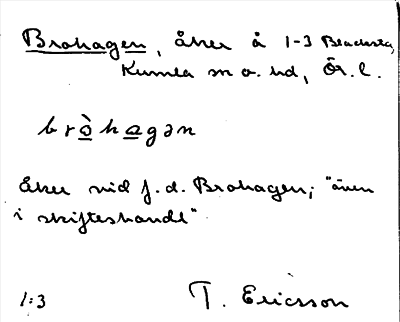 Brohagen, åker å 1-3 Blacksta,
Kumla sn o. hd, Ör. l.
bròhagən
Åker vid f. d. Brohagen; "även
i skifteshandl"
1:3 T. Ericsson